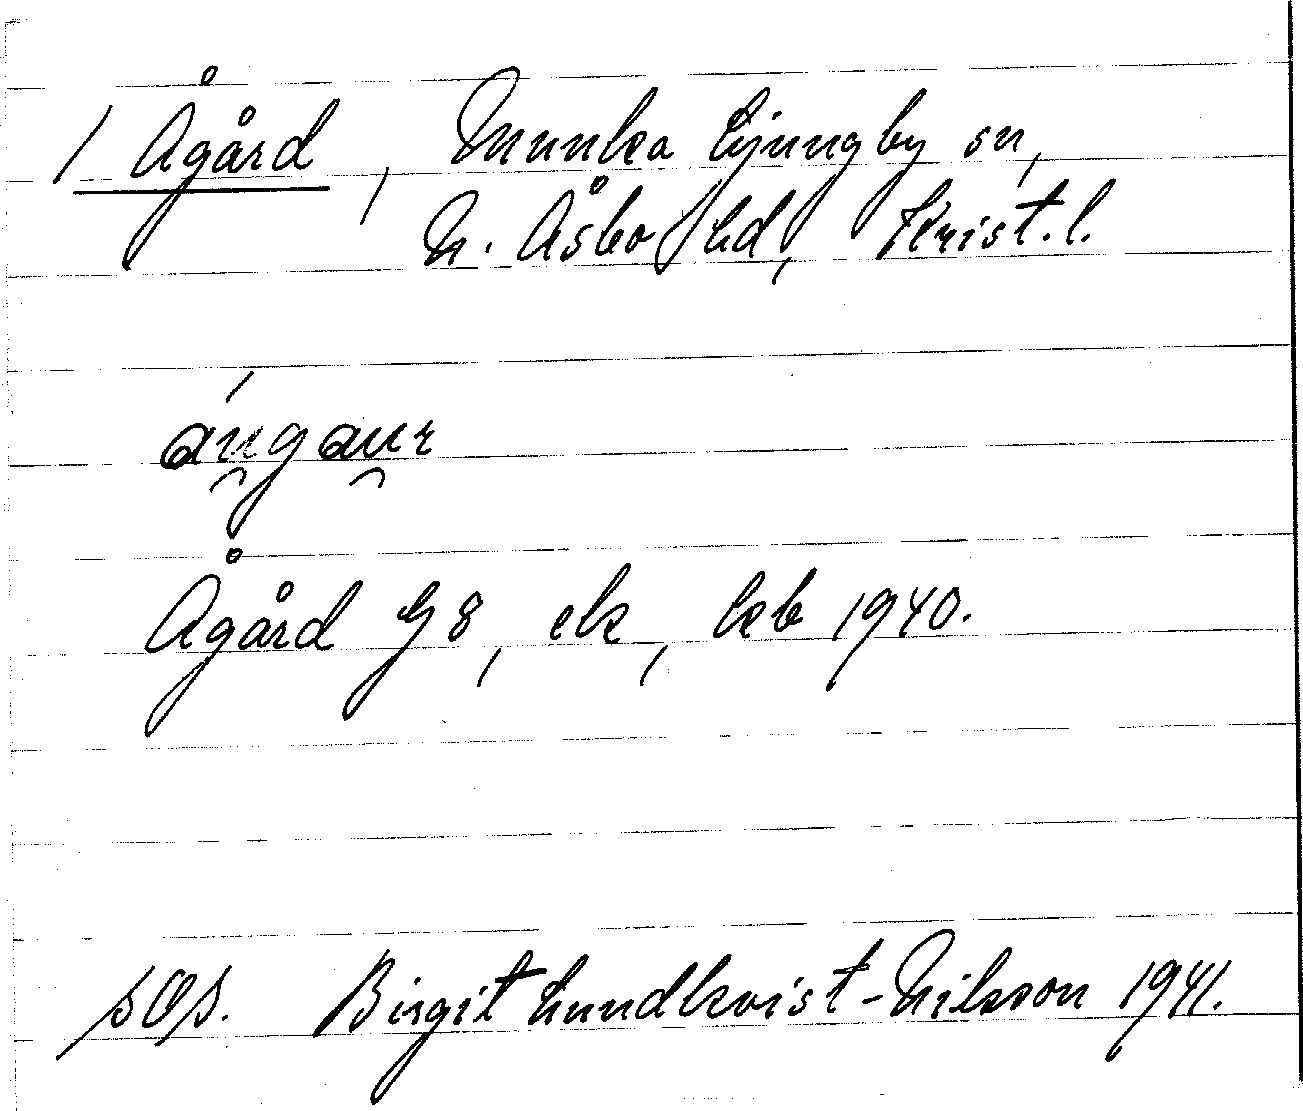 1 Ågård, Munka Ljungby sn,
N. Åsbo hd, Krist. l.
áu̯gau̯r
Ågård G8, ek, kb 1940.
Birgit Lundkvist-Nilsson 1941.